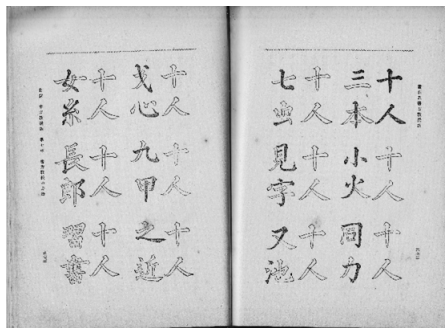 十人十人十人
三本小火同力
十人十人十人
七虫見字又池
十人十人十人
戈心九甲之近
十人十人十人
女糸長郎習書